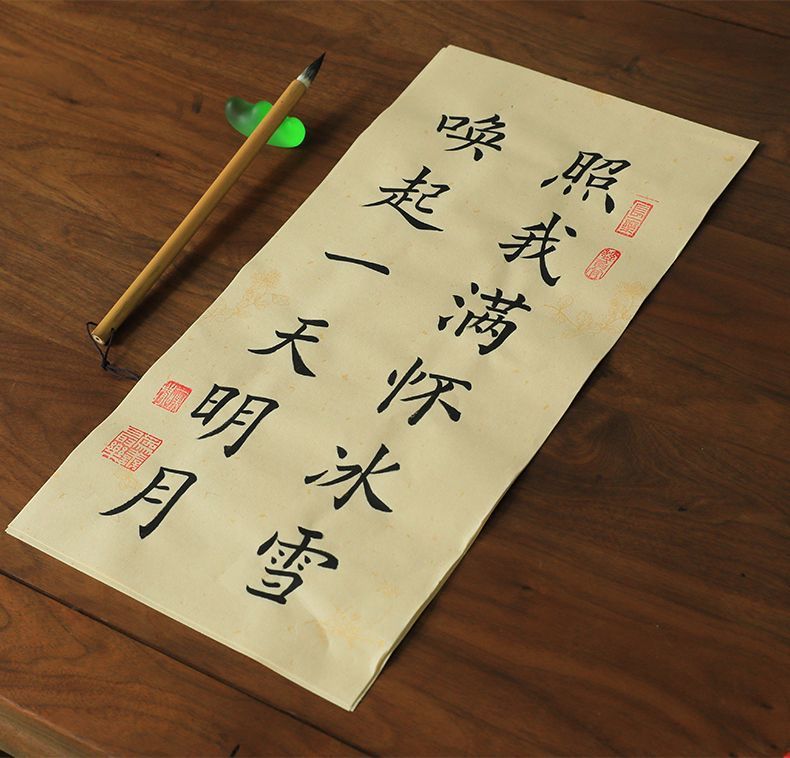 照我满怀冰雪
唤起一天明月